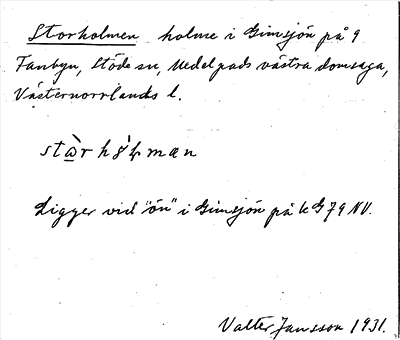 Storholmen holme i Gimsjön på 9
Fanbyn, Stöde sn, Medelpads västra domsaga,
Västernorrlands l.
stὼrhǫ́ɫmæn
Ligger vid "ön" i Gimsjön på k G 79 NV.
Valter Jansson 1931.